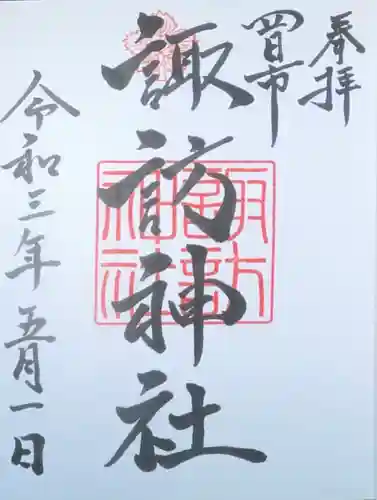 奉拝
四日市
諏訪神社
令和三年五月一日
諏訪
神社